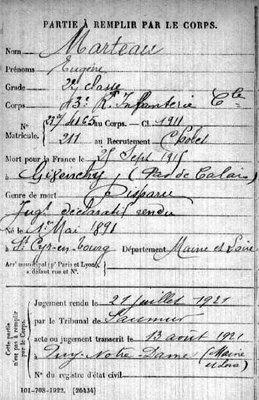 PARTIE À REMPLIR PAR LE CORPS.
Nom Marteau
Prénoms Eugène
Grade 2e classe
Corps 3e Rt Infanterie Cle
N° 4165 au Corps. — Cl. 1911
Matricule. 211 au Recrutement Cholet
Mort pour la France le 25 Sept 1915
à Givenchy (Pas de Calais)
Genre de mort Disparu
Jugt déclaratif rendu
Né le 1er Mai 1891
à St Cyr-en-bourg Département Maine et Loire
Arrt municipal (pr Paris et Lyon),
à défaut rue et N°.
Cette partie
n'est pas à remplir
par le Corps.
Jugement rendu le 21 juillet 1921
par le Tribunal de Saumur
acte ou jugement transcrit le 13 août 1921
à Puy-Notre-Dame (Maine
et Loire)
N° du registre d'état civil
101-708-1922. [26434]